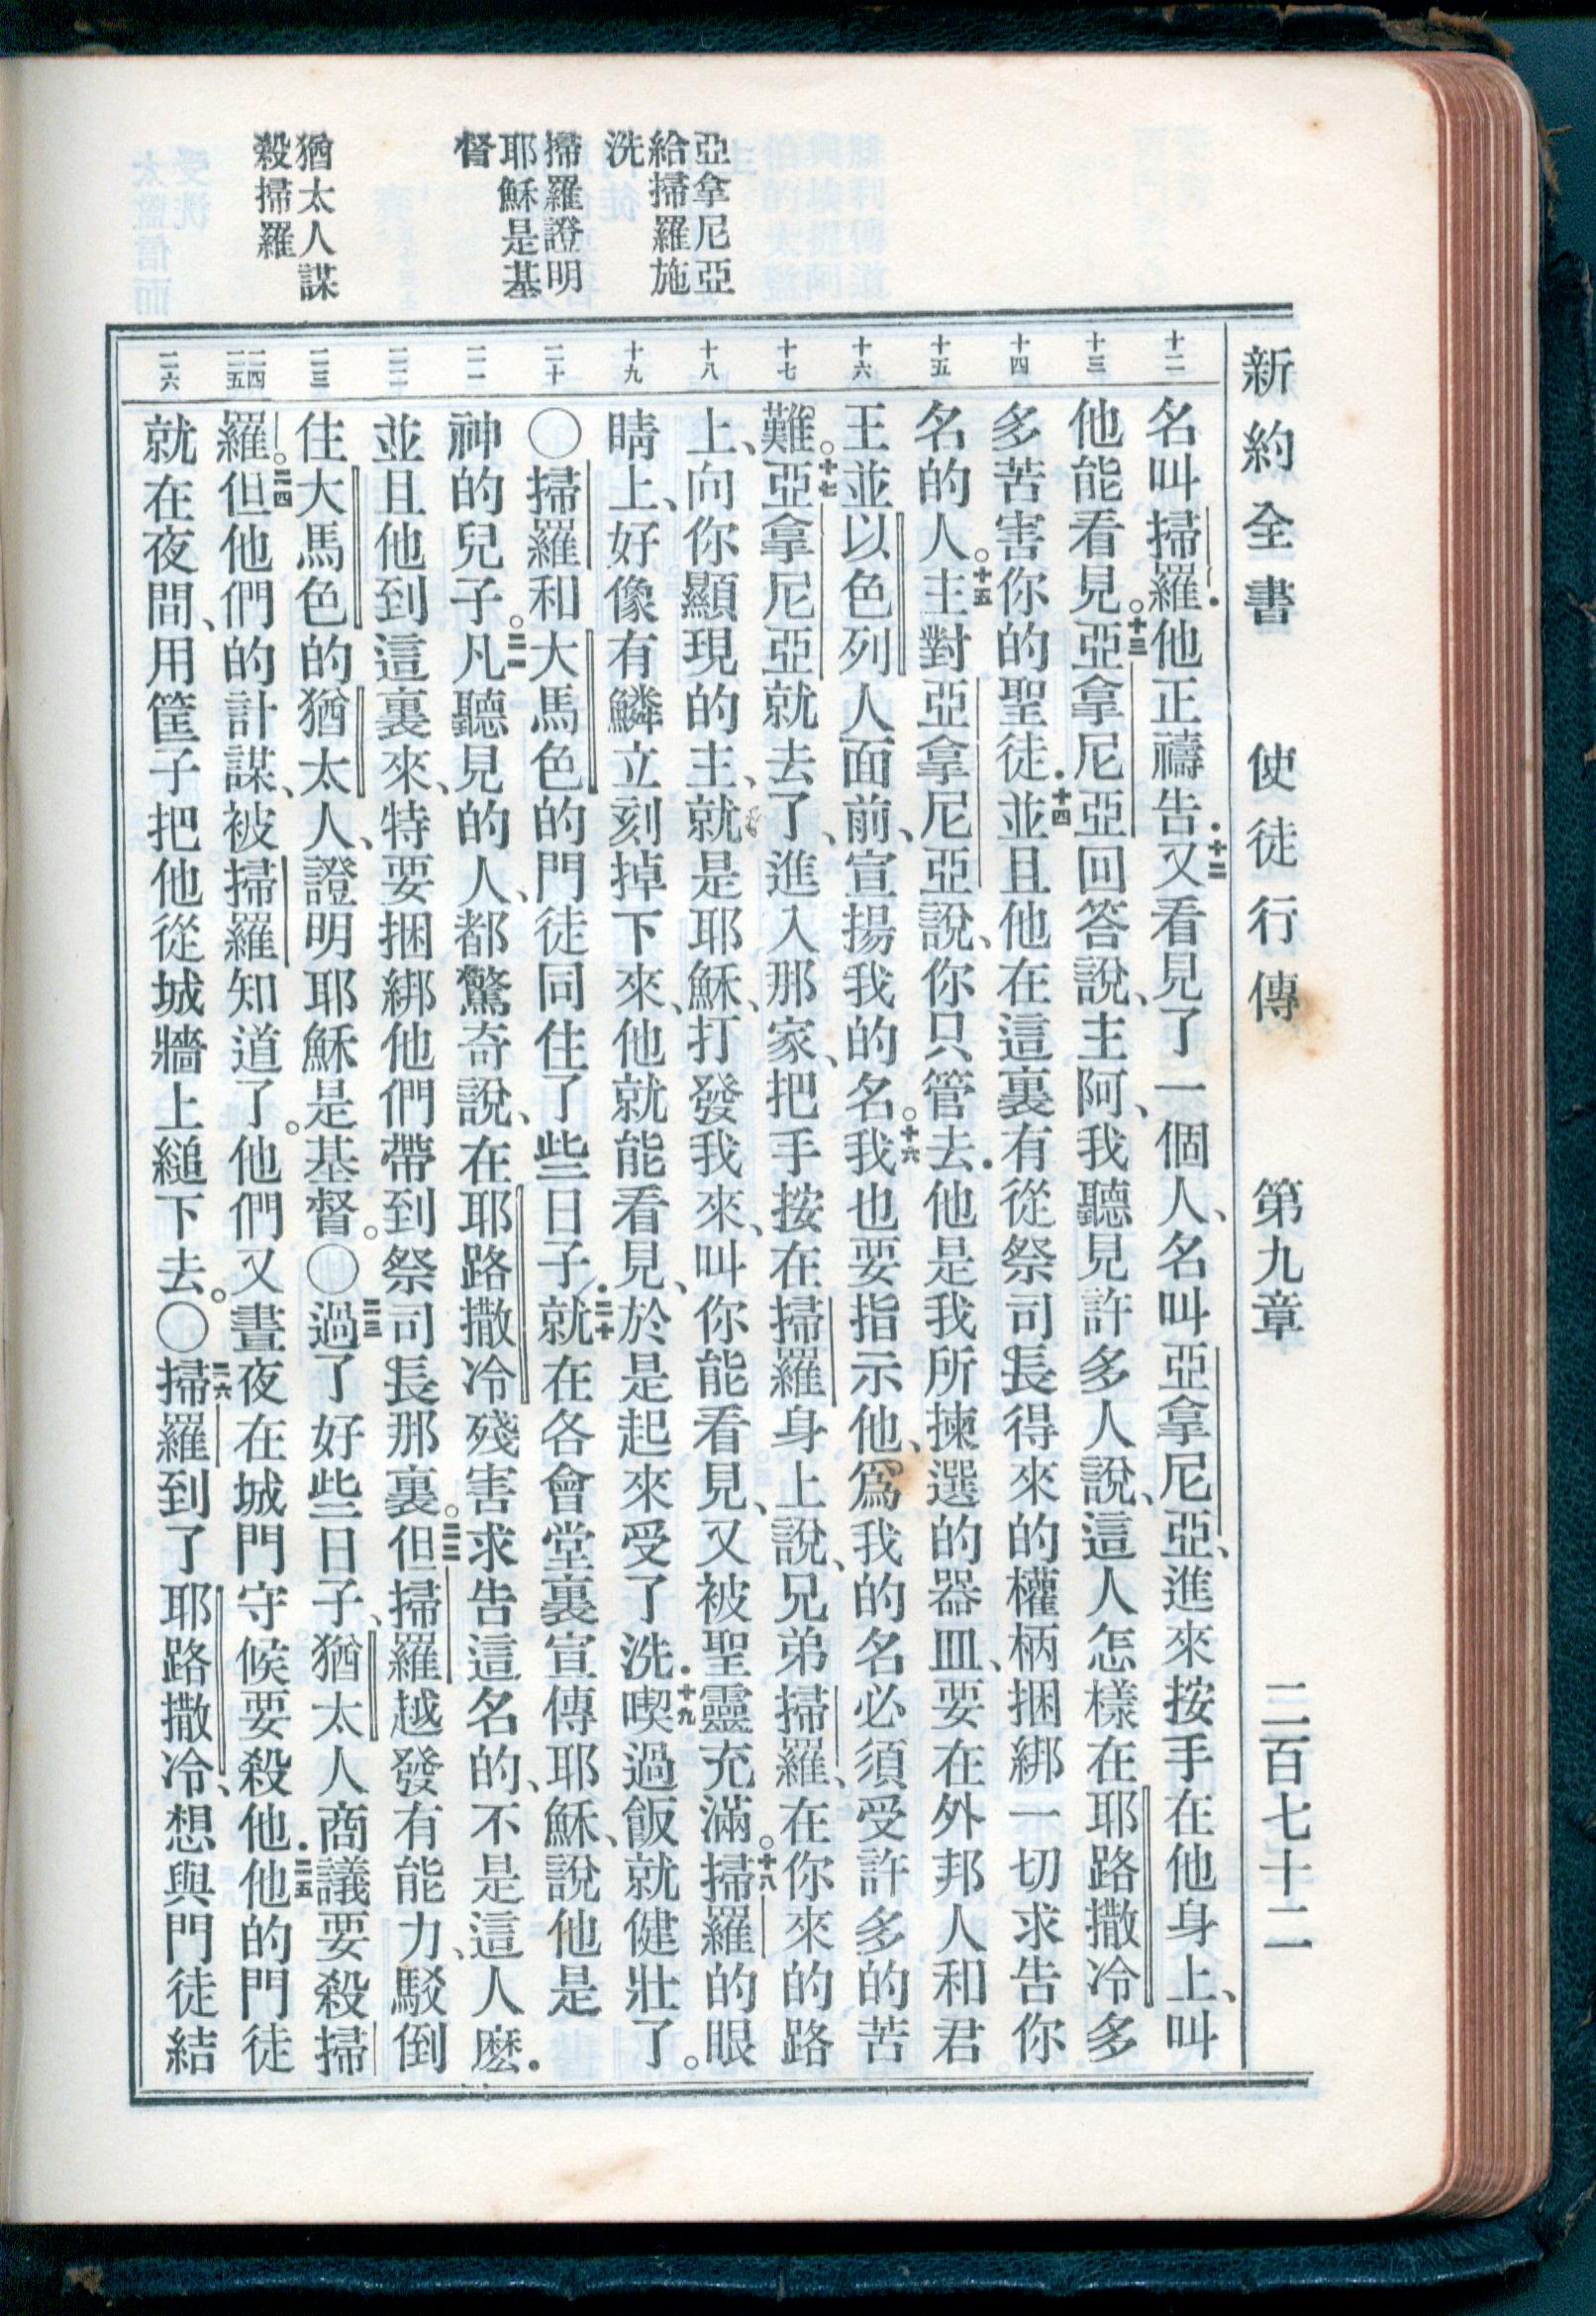 新約全書 使徒行傳 第九章 二百七十二
亞拿尼亞
給掃羅施
洗
掃羅證明
耶穌是基
督
猶太人謀
殺掃羅
十二
名叫掃羅．他正禱告．十二又看見了一個人、名叫亞拿尼亞、進來按手在他身上、叫
十三
他能看見。十三亞拿尼亞回答說、主阿、我聽見許多人說、這人怎樣在耶路撒冷多
十四
多苦害你的聖徒．十四並且他在這裏有從祭司長得來的權柄捆綁一切求告你
十五
名的人。十五主對亞拿尼亞說、你只管去．他是我所揀選的器皿、要在外邦人和君
十六
王並以色列人面前、宣揚我的名。十六我也要指示他、為我的名必須受許多的苦
十七
難。十七亞拿尼亞就去了、進入那家、把手按在掃羅身上說、兄弟掃羅、在你來的路
十八
上、向你顯現的主、就是耶穌、打發我來、叫你能看見、又被聖靈充滿。十八掃羅的眼
十九
睛上、好像有鱗立刻掉下來、他就能看見、於是起來受了洗．十九喫過飯就健壯了。
二十
〇掃羅和大馬色的門徒同住了些日子．二十就在各會堂裏宣傳耶穌、說他是
二一
神的兒子。二一凡聽見的人、都驚奇說、在耶路撒冷殘害求告這名的、不是這人麽．
二二
並且他到這裏來、特要捆綁他們帶到祭司長那裏。二二但掃羅越發有能力、駁倒
二三
住大馬色的猶太人、證明耶穌是基督。〇二三過了好些日子、猶太人商議要殺掃
二四 二五
羅。二四但他們的計謀、被掃羅知道了。他們又晝夜在城門守候要殺他．二五他的門徒
二六
就在夜間、用筐子把他從城牆上縋下去。〇二六掃羅到了耶路撒冷、想與門徒結